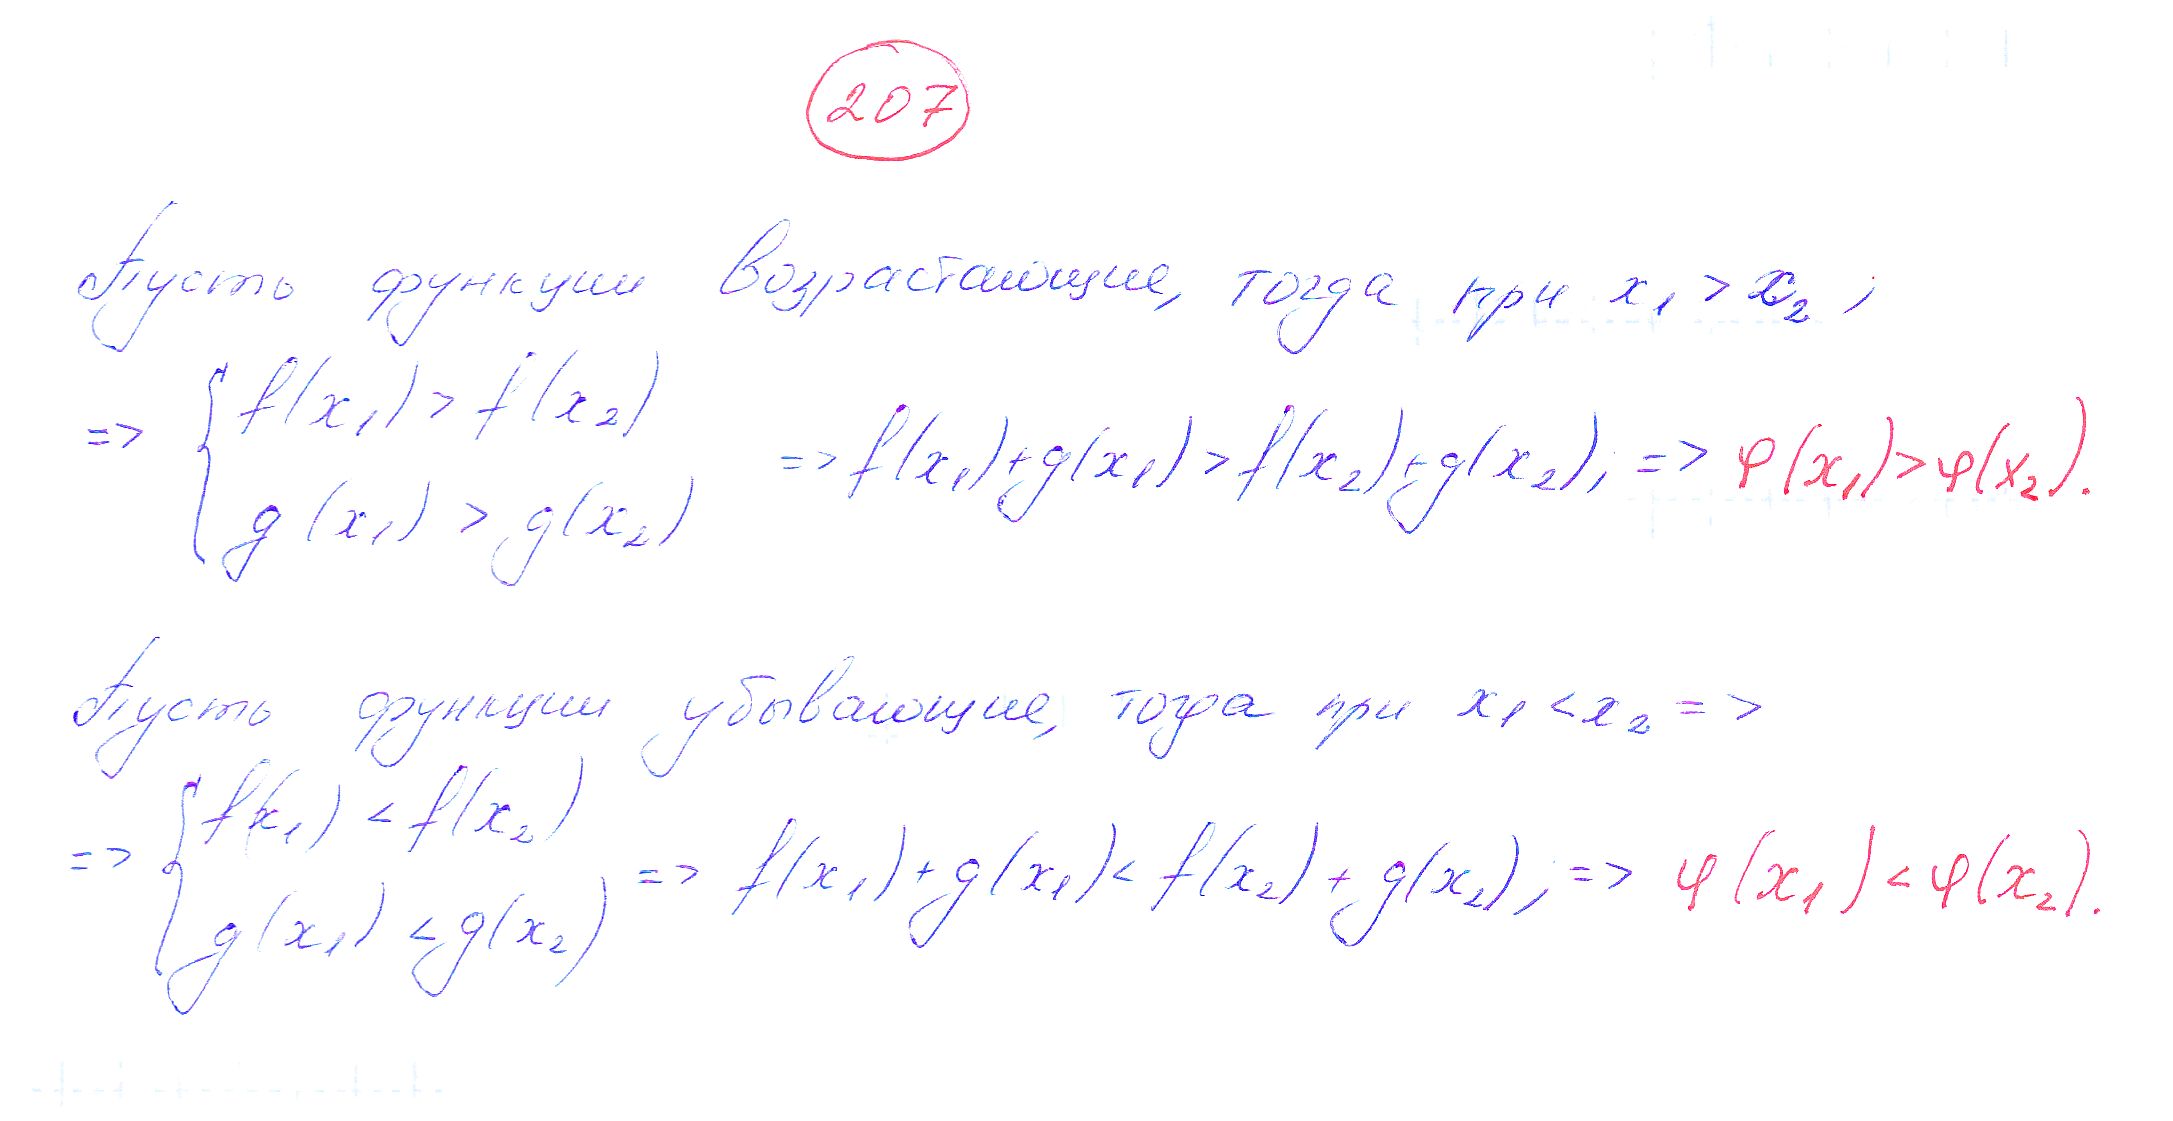 207
Пусть функции возрастающие, тогда при x₁ > x₂ ;
=> { f(x₁) > f(x₂)
g(x₁) > g(x₂)
=> f(x₁)+g(x₁) > f(x₂)+g(x₂); => φ(x₁)>φ(x₂).
Пусть функции убывающие, тогда при x₁ < x₂ =>
=> { f(x₁) < f(x₂)
g(x₁) < g(x₂)
=> f(x₁)+g(x₁) < f(x₂)+g(x₂); => φ(x₁) < φ(x₂).